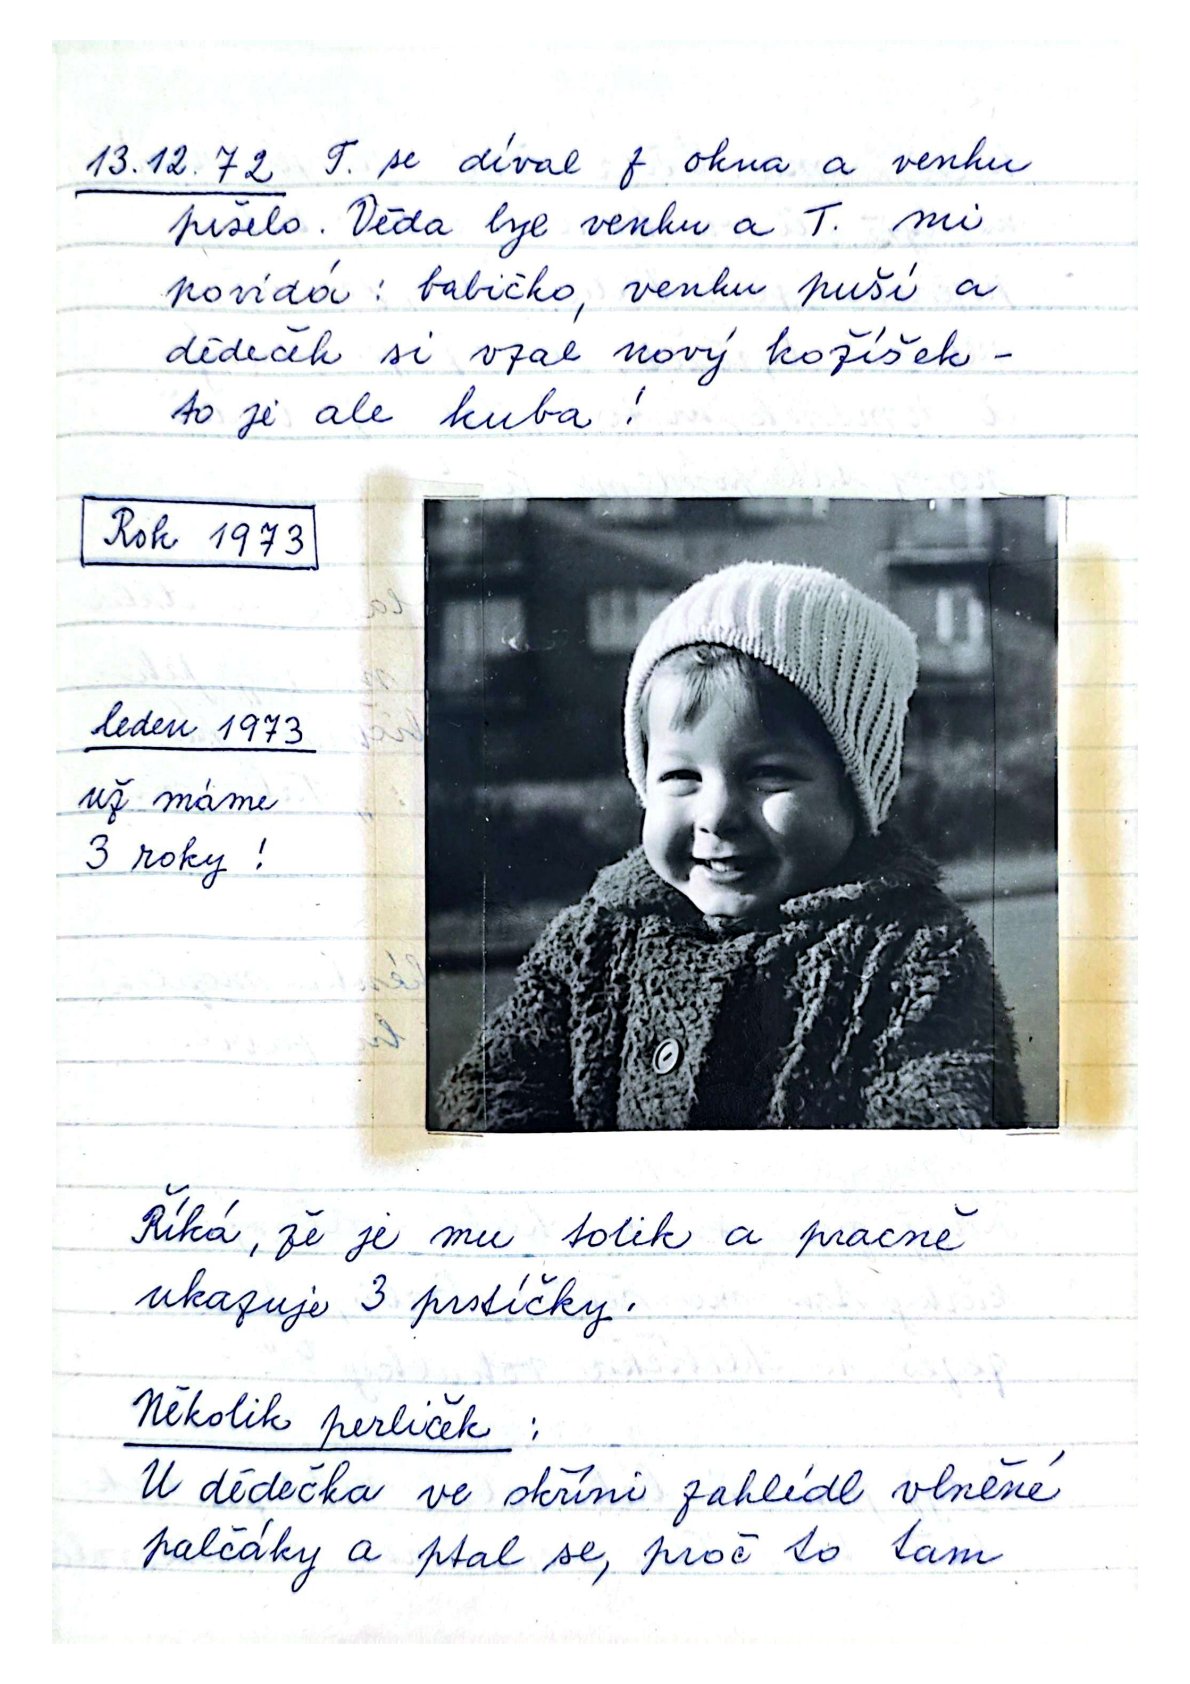 13.12.72 T. se díval z okna a venku
pršelo. Děda byl venku a T. mi
povídá: babičko, venku puší a
dědeček si vzal nový kožíšek -
to je ale kuba!
Rok 1973
leden 1973
už máme
3 roky!
Říká, že je mu tolik a pracně
ukazuje 3 prstíčky.
Několik perliček:
U dědečka ve skříni zahlédl vlněné
palčáky a ptal se, proč to tam